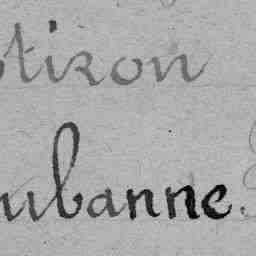 tison
ubanne.